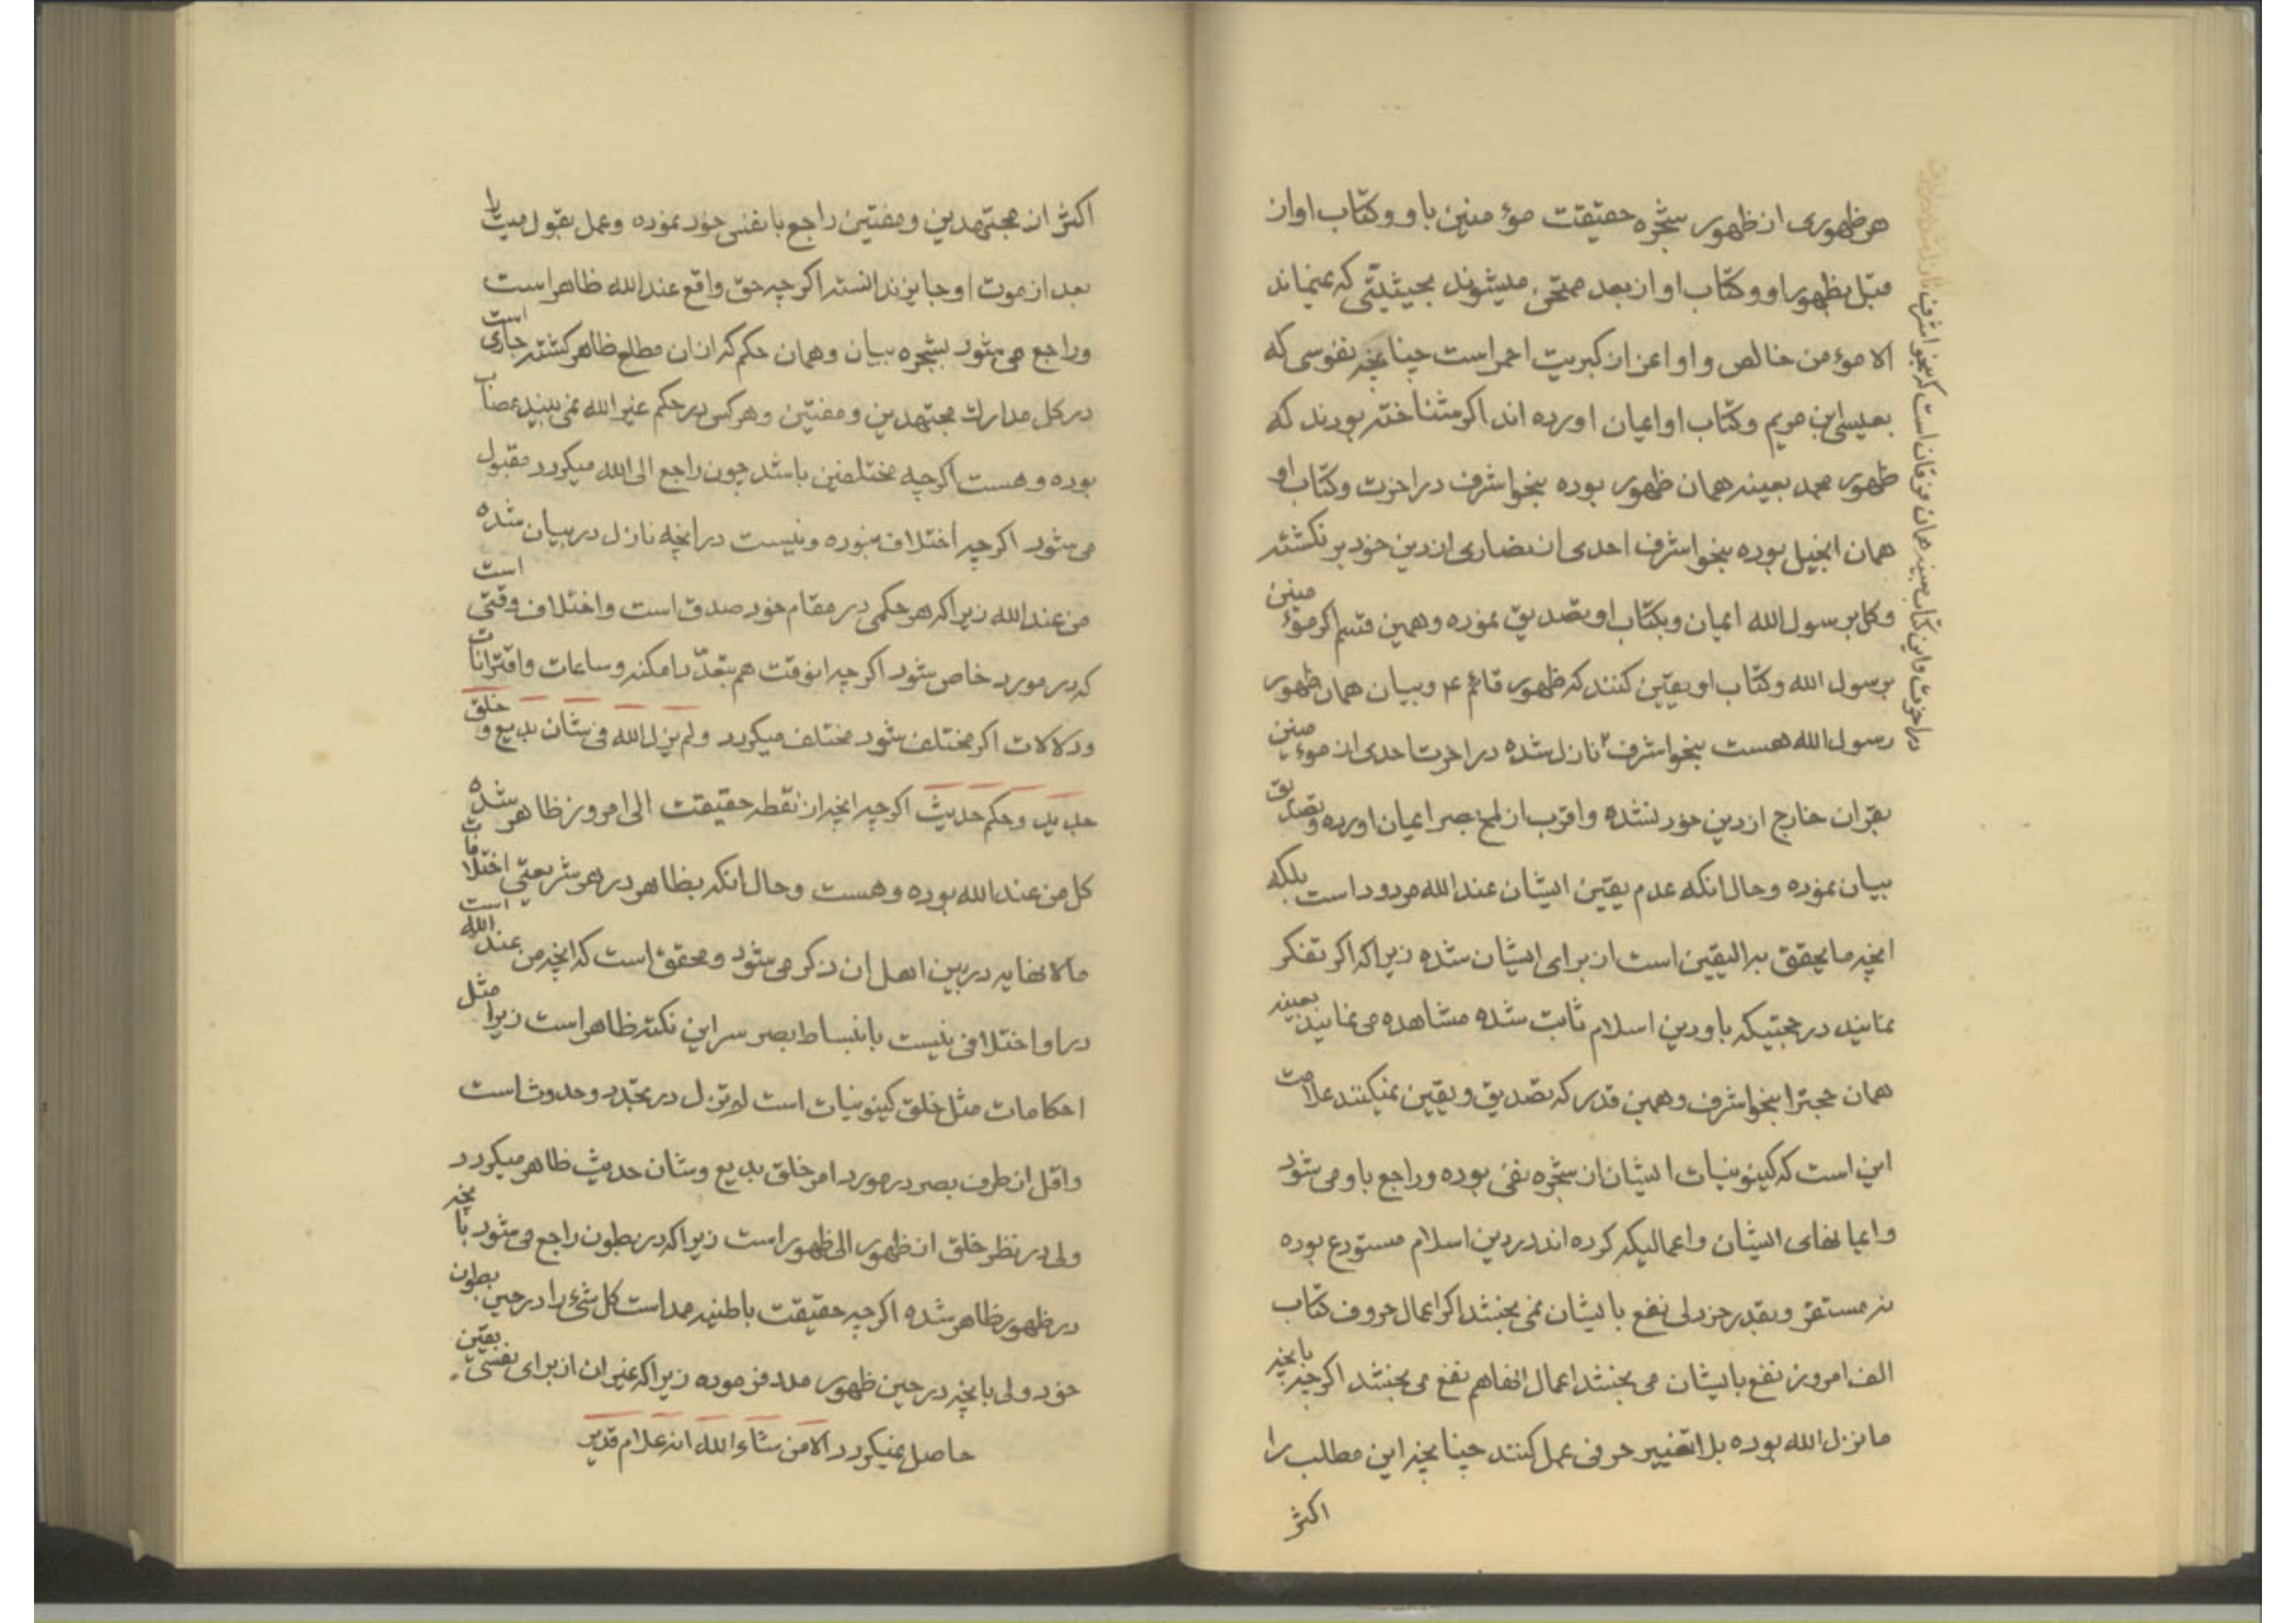 هر ظهوری از ظهور شجره حقیقت مؤمنین باو و کتاب او از
قبل بظهور او و کتاب او از بعد ممتحن میشوند بحیثیتی که نمیماند
الا مؤمن خالص و او اعز از کبریت احمر است چنانچه نفوسی که
بعیسی ابن مریم و کتاب او ایمان اورده اند اگر شناخته بودند که
ظهور محمد بعینه همان ظهور بوده بنحو اشرف در اخرت و کتاب او
همان انجیل بوده بنحو اشرف احدی از نصاری از دین خود بر نگشته
و کل برسول الله ایمان و بکتاب او تصدیق نموده و همین قسم اگر مؤمنین
برسول الله و کتاب او یقین کنند که ظهور قائم ع و بیان همان ظهور
رسول الله هست بنحو اشرف ۲ نازل شده در اخرت احدی از مؤمنین
بقران خارج از دین خود نشده و اقرب از لمح بصر ایمان اورده و تصدیق
ببیان نموده و حال انکه عدم یقین ایشان عند الله مردود است بلکه
انچه ما یحقق به الیقین است از برای ایشان شده زیرا که اگر تفکر
نمایند در حجتیکه باو دین اسلام ثابت شده مشاهده می نمایند بعینه
همان حجترا بنحو اشرف و همین قدر که تصدیق و یقین نمیکنند علامت
این است که کینونیات ایشان از شجره نفی بوده و راجع باو می شود
و ایمانهای ایشان و اعمالیکه کرده اند در دین اسلام مستودع بوده
نه مستقر و بقدر خردلی نفع بایشان نمی بخشد اگر اعمال حروف کتاب
الف امروز نفع بایشان می بخشد اعمال انها هم نفع می بخشد اگر چه بانچه
ما نزل الله بوده بلا تغییر حرفی عمل کنند چنانچه این مطلب را
اکثر
در اخرت و این کتاب بعینه همان فرقان است که بنحو اشرف
اکثر از مجتهدین و مفتین راجع بانفس خود نموده و عمل بقول میت را
بعد از موت او جایز ندانسته اگر چه حق واقع عند الله ظاهر است
و راجع می شود بشجره بیان و همان حکم که از ان مطلع ظاهر گشته جاری است
در کل مدارک مجتهدین و مفتین و هر کس در حکم غیر الله نمی بیند مصاب
بوده و هست اگر چه مختلفین باشد چون راجع الی الله میگردد مقبول
می شود اگر چه اختلاف نبوده و نیست در انچه نازل در بیان شده است
من عند الله زیرا که هر حکمی در مقام خود صدق است و اختلاف وقتی
که در مورد خاص شود اگر چه انوقت هم بتعدد امکنه و ساعات و اقترانات
و دلالات اگر مختلف شود مختلف میگردد و لم یزل الله فی شان بدیع و خلق
جدید و حکم حدیث اگر چه انچه از نقطه حقیقت الی امروز ظاهر شده
کل من عند الله بوده و هست و حال انکه بظاهر در هر شریعتی اختلافات است
مالا نهایه در بین اهل ان ذکر می شود و محقق است که انچه من عند الله
در او اختلافی نیست بانبساط بصر سر این نکته ظاهر است زیرا مثل
احکامات مثل خلق کینونیات است لم تزل در تجدد و حدوث است
و اقل از طرف بصر در مورد امر خلق بدیع و شان حدیث ظاهر میگردد
ولی در نظر خلق از ظهور الی ظهور است زیرا که در بطون راجع می شود بانچه
در ظهور ظاهر شده اگر چه حقیقت باطنیه ممد است کل شیء را در حین بطون
خود ولی بانچه در حین ظهور مدد فرموده زیرا که غیر ان از برای نفسی یقین
حاصل نمیگردد الا من شاء الله انه علام قدیر